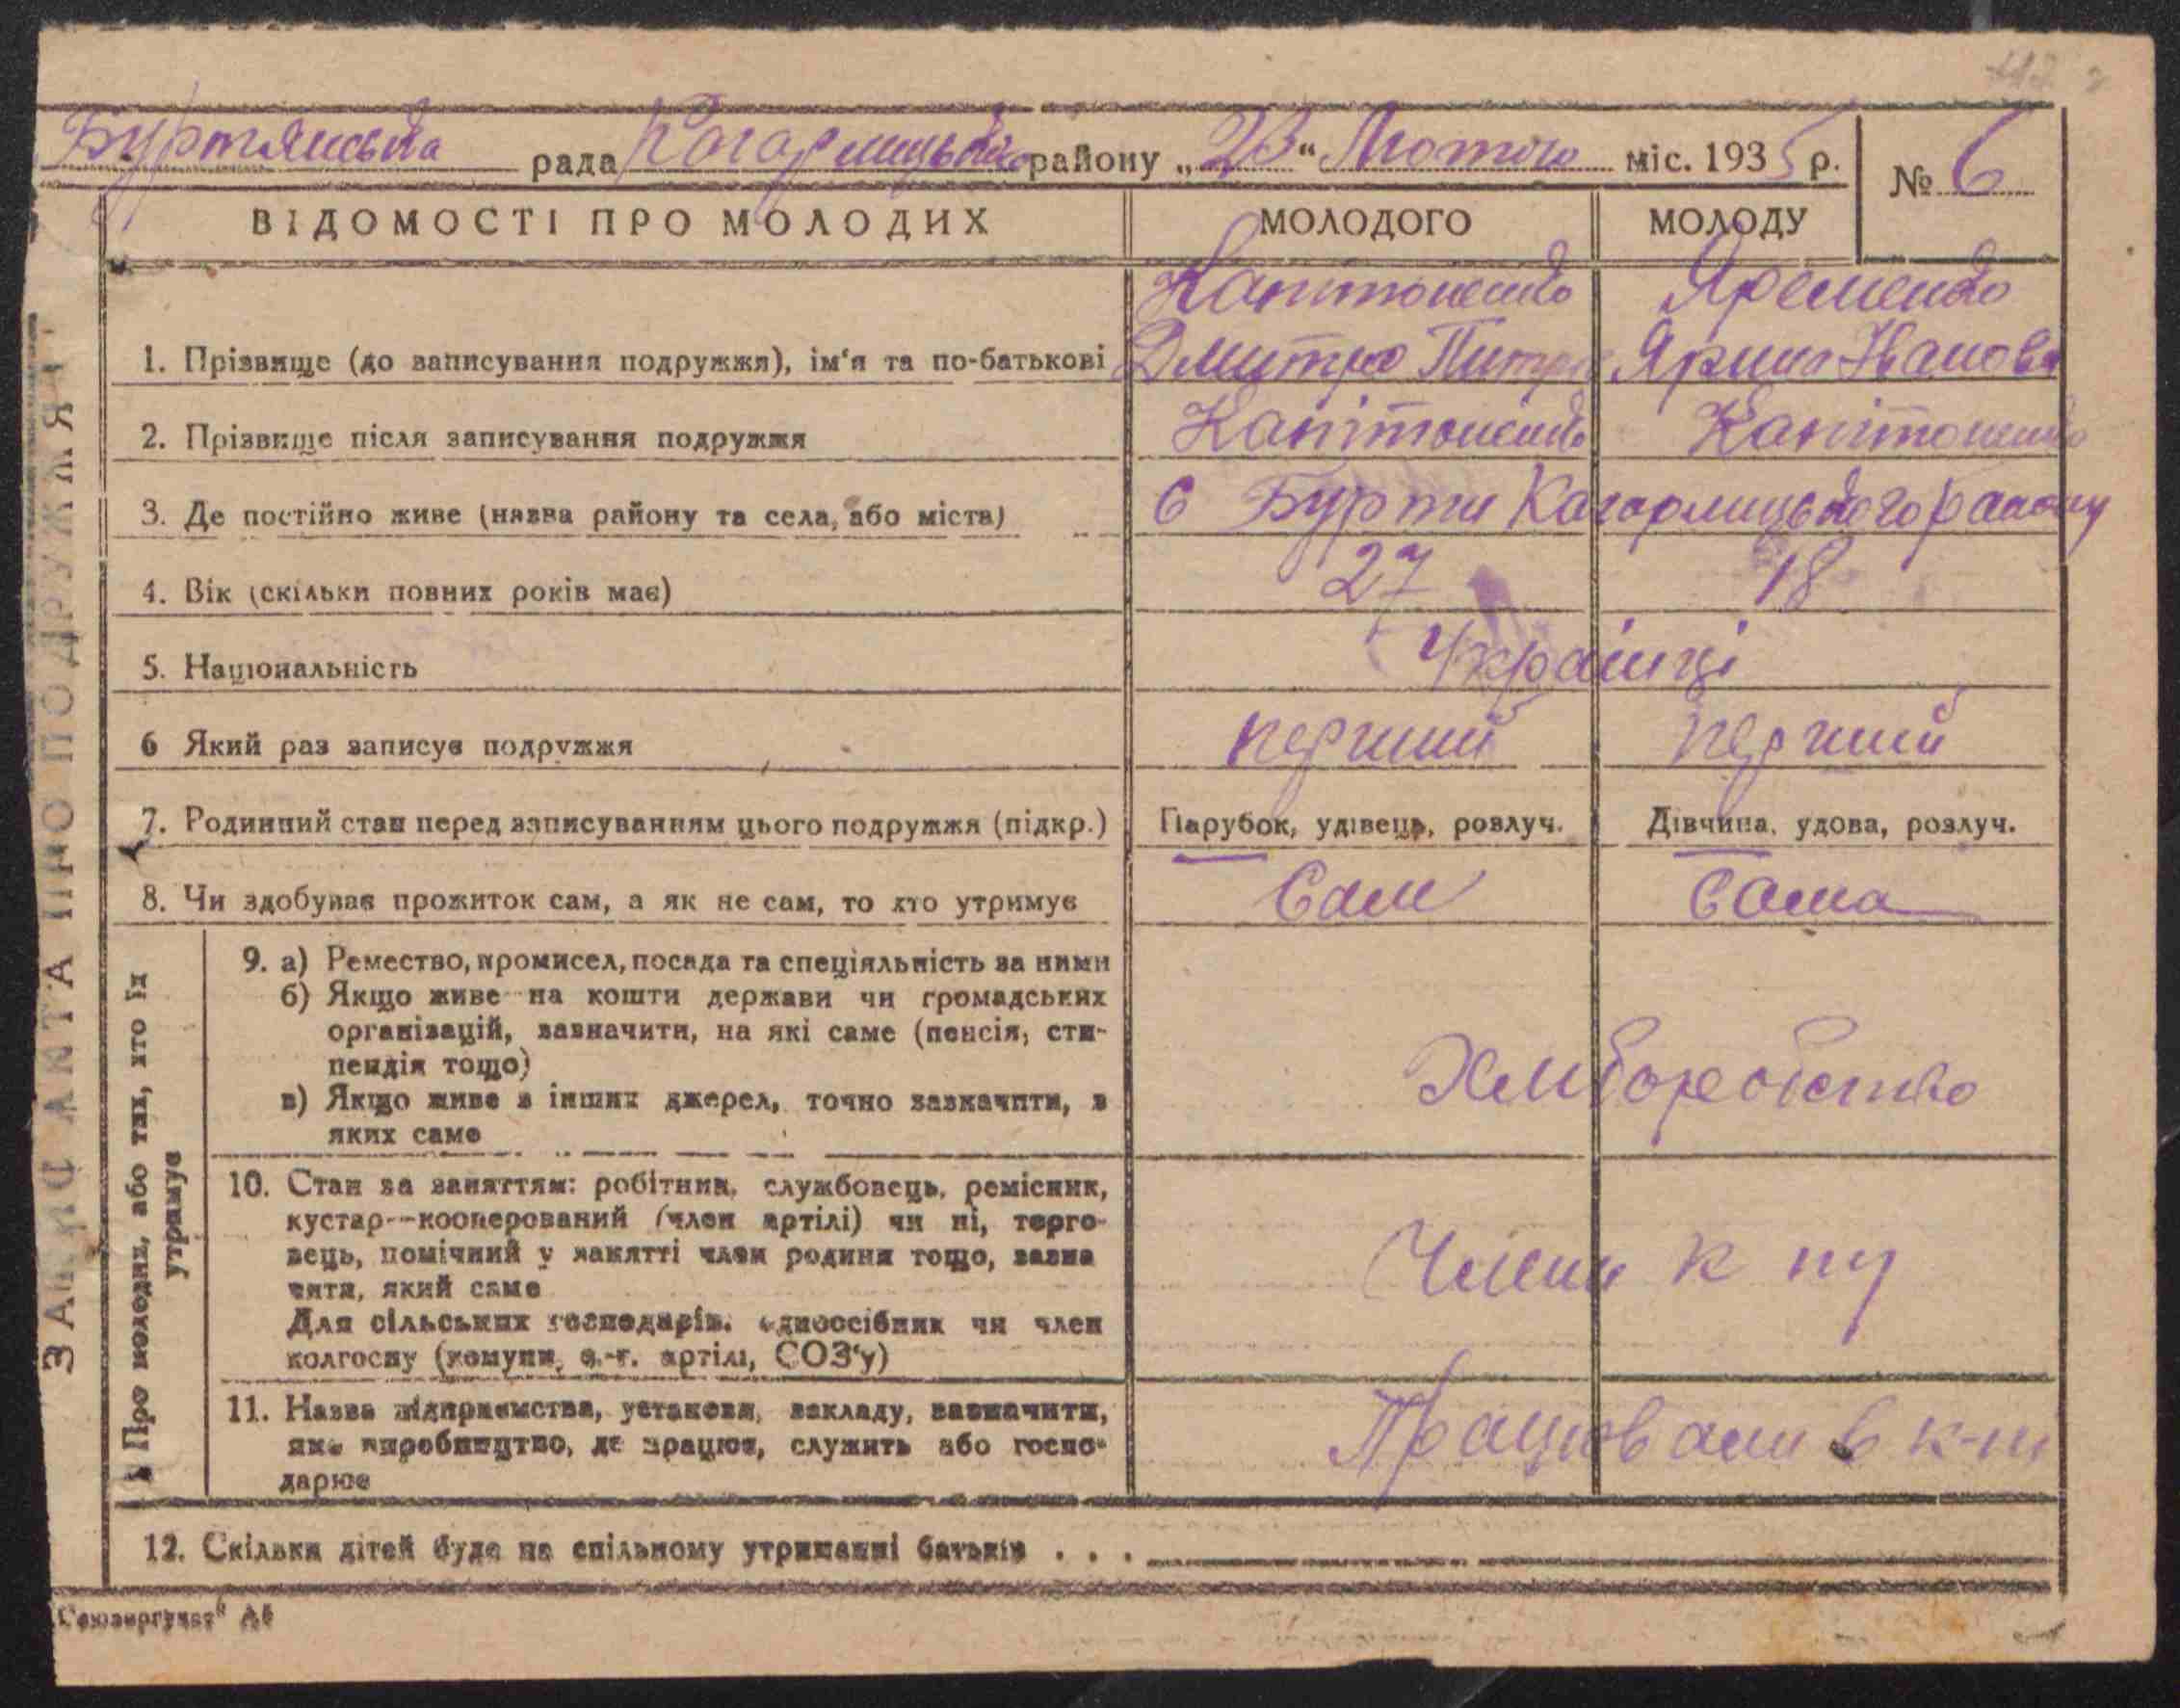 Буртянська рада Кагарлицького району „23“ Лютого міс. 1935 р. № 6
ВІДОМОСТІ ПРО МОЛОДИХ МОЛОДОГО МОЛОДУ
Капітоненко Яременко
1. Прізвище (до записування подружжя), ім‘я та по-батькові Дмитро Питро Ярина Іванова
2. Прізвище після записування подружжя Капітоненко Капітоненко
3. Де постійно живе (назва району та села, або міста) с Бурти Кагарлицького району
4. Вік (скільки повних років має) 27 18
5. Національність Українці
6 Який раз записує подружжя перший перший
7. Родинний стан перед записуванням цього подружжя (підкр.) Парубок, удівець, розлуч. Дівчина, удова, розлуч.
8. Чи здобував прожиток сам, а як не сам, то хто утримує Сам Сама
ЗАПИС АКТА ПРО ПОДРУЖЖЯ
Про молодих, або тих, хто їх
утримує
9. а) Ремество, промисел, посада та спеціяльність за ними
б) Якщо живе на кошти держави чи громадських
організацій, зазначити, на які саме (пенсія, сти-
пендія тощо)
в) Якщо живе з інших джерел, точно зазначити, з
яких саме
Хліборобство
10. Стан за заняттям: робітник, службовець, ремісник,
кустар--кооперований (член артілі) чи ні, торго-
вець, помічний у занятті член родини тощо, зазна
чити, який саме
Для сільських господарів: одноосібник чи член
колгоспу (комуни, с.-г. артілі, СОЗ‘у)
Члени к пу
11. Назва підприємства, установи, закладу, зазначити,
яке виробництво, де працює, служить або госпо-
дарює
Працювали в к-пі
12. Скільки дітей буде на спільному утриманні батьків . . .